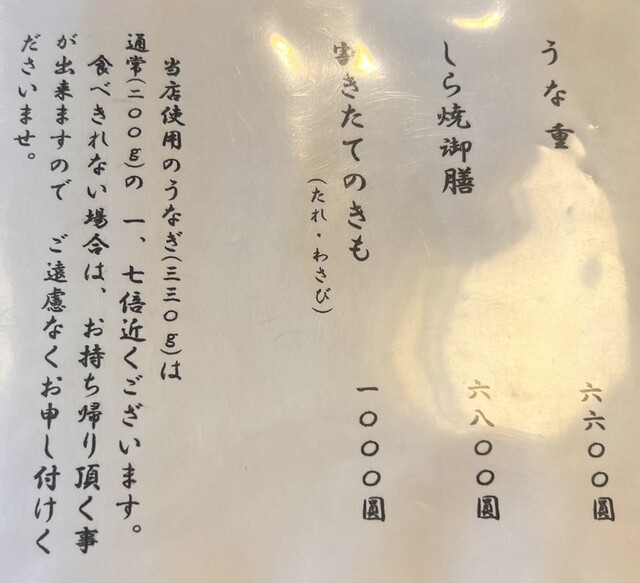 うな重 六六〇〇圓
しら焼御膳 六八〇〇圓
割きたてのきも 一〇〇〇圓
(たれ・わさび)
当店使用のうなぎ(三三〇g)は
通常(二〇〇g)の 一、七倍近くございます。
食べきれない場合は、お持ち帰り頂く事
が出来ますので ご遠慮なくお申し付けく
ださいませ。